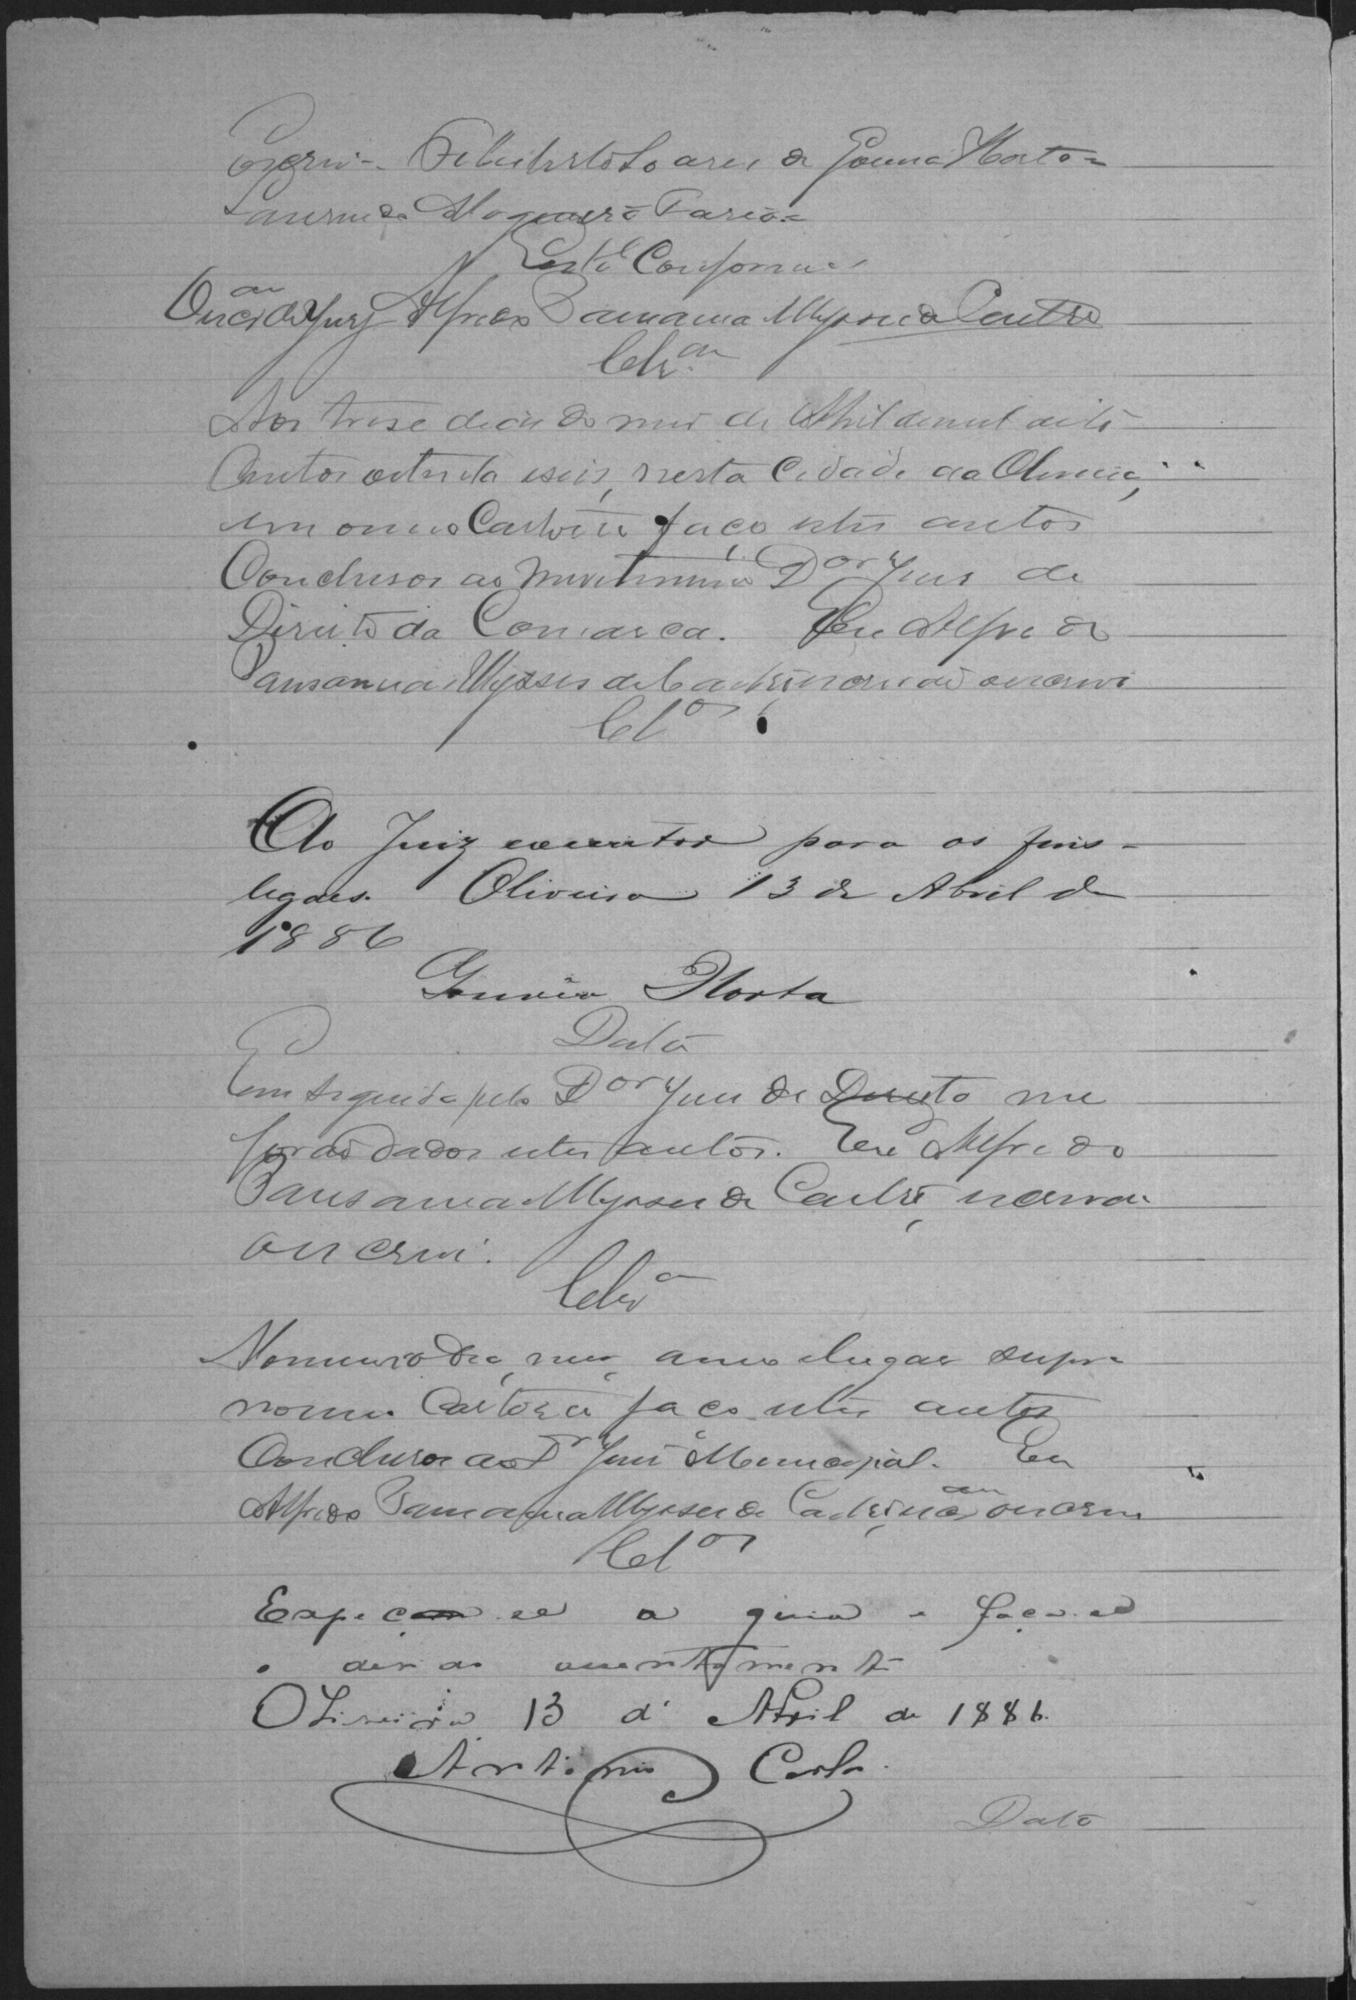 escrevi. Filisberto Soares de Gouvea Horta
Nogueira Faria
Está Conforme
O escrivão do Jury Alfredo Pausania Ulysses de Castro
Clsam
Aos trese dias do mes de Abril de mil oito
centos oitenta e seis, nesta Cidade da Oliveira,
em o meu Cartorio faço estes autos
Conclusos ao Meritissimo Dor Juis de
Direito da Comarca. Eu Alfredo
Pausania Ulysses de Castro, escrivão o escrevi
Clos
Ao Juiz executor para os fins
legaes. Oliveira 13 de Abril de
1886
Gouvêa Horta
Data
Em seguida pelo Dor Juis de Direito me
forão dados estes autos. Eu Alfredo
Pausania Ulysses de Castro, escrivão
o escrevi.
Clsam
No mesmo dia, mes, anno e lugar supra
no meu Cartorio faço estes autos
Conclusos ao Dr Juis Municipal. Eu
Alfredo Pausania Ulysses de Castro, escrivão o escrevi
Clos
Expeça-se a guia e faça-se
o devido assentamento
Oliveira 13 d' Abril de 1886.
Antonio Carlos
Data